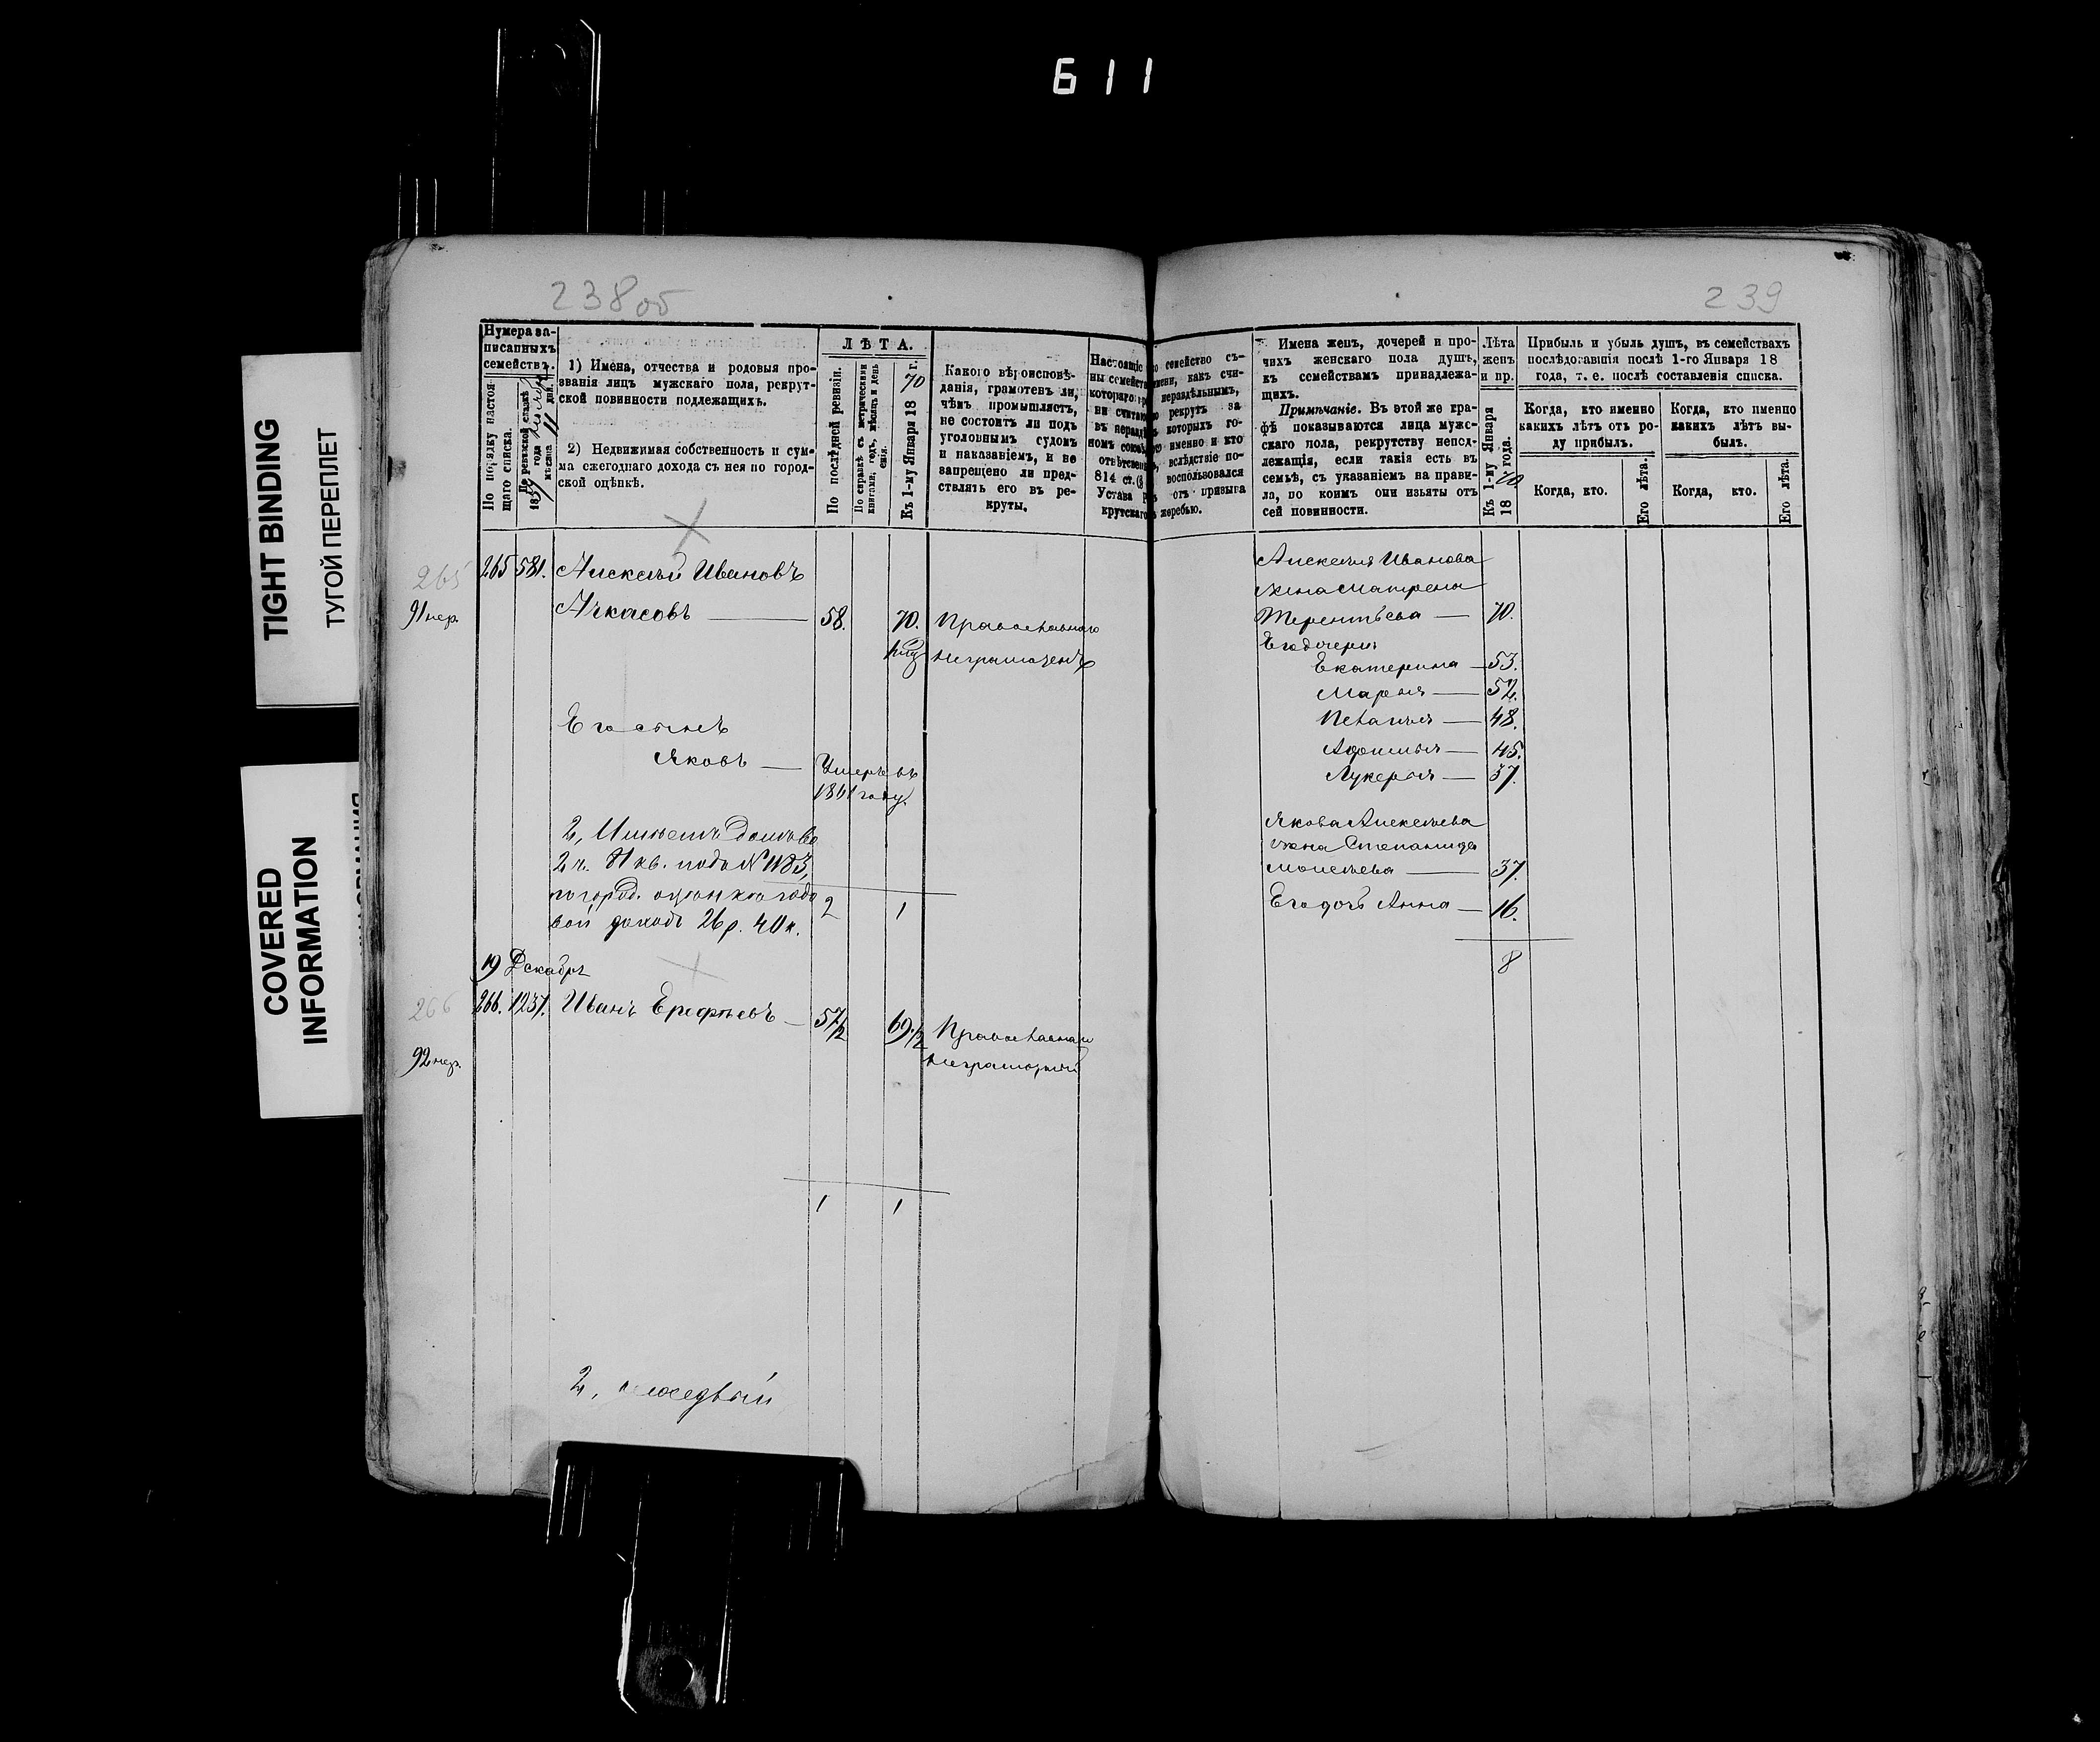 611
TIGHT BINDING
ТУГОЙ ПЕРЕПЛЕТ
COVERED
INFORMATION
238об
Нумера за-
писанныхъ
семействъ.
По порядку настоя-
щаго списка.
По ревизской сказкѣ
185 года
мѣсяца 11 дня.
1) Имена, отчества и родовыя про-
званія лицъ мужскаго пола, рекрут-
ской повинности подлежащихъ.
2) Недвижимая собственность и сум-
ма ежегоднаго дохода съ нея по город-
ской оцѣнкѣ.
ЛѢТА.
По послѣдней ревизіи.
По справкѣ съ метрическими
книгами, годъ, мѣсяцъ и день
Къ 1-му Января 1870 г.
Какого вѣроисповѣ-
данія, грамотенъ ли,
чѣмъ промышляетъ,
не состоитъ ли подъ
уголовнымъ судомъ
и наказаніемъ, и не
запрещено ли пред-
ставлять его въ ре-
круты.
Настоящіе
ны семейства
котораго
ни считаю
въ нераздѣ
номъ союзѣ
814 ст.
Устава
крутскаго
265
91 нер.
265 581. Алексѣй Ивановъ
Ачкасовъ — 58. 70. Православнаго
неграмотенъ
Его сынъ
Яковъ — Умеръ въ
1861 году.
2, Имѣетъ Домъ во
2 ч. 81 кв. подъ № 1183,
по город. оцѣнкѣ годо
вой доходъ 26 р. 40 к.
2 1
19 Декабря
266
92 нер.
266. 1237. Иванъ Ерефѣевъ — 57 1/2 69 1/2 Православнаго
неграмотный
1 1
2,
239
семейство съ-
нераздѣльнымъ,
рекрутъ за
которыхъ го-
именно и кто
вслѣдствіе по-
воспользовался
отъ призыва
жеребью.
Имена женъ, дочерей и про-
чихъ женскаго пола душъ,
къ семействамъ принадлежа-
щихъ.
Примѣчаніе. Въ этой же гра-
фѣ показываются лица муж-
скаго пола, рекрутству непод-
лежащія, если такія есть въ
семьѣ, съ указаніемъ на прави-
ла, по коимъ они изъяты отъ
сей повинности.
Лѣта
женъ
и пр.
Къ 1-му Января
1870 года.
Прибыль и убыль душъ, въ семействахъ
послѣдовавшія послѣ 1-го Января 18
года, т. е. послѣ составленія списка.
Когда, кто именно
какихъ лѣтъ отъ ро-
ду прибылъ.
Когда, кто именно
какихъ лѣтъ вы-
былъ.
Когда, кто.
Его лѣта.
Когда, кто.
Его лѣта.
Алексѣя Иванова
жена Матрена
Терентьева — 70.
Его дочери
Екатерина — 53.
Марья — 52.
Пелагея — 48.
Афимья — 45.
Лукерья — 37.
Якова Алексѣева
жена Степанида
Моисеева — 37.
Его дочь Анна — 16.
8